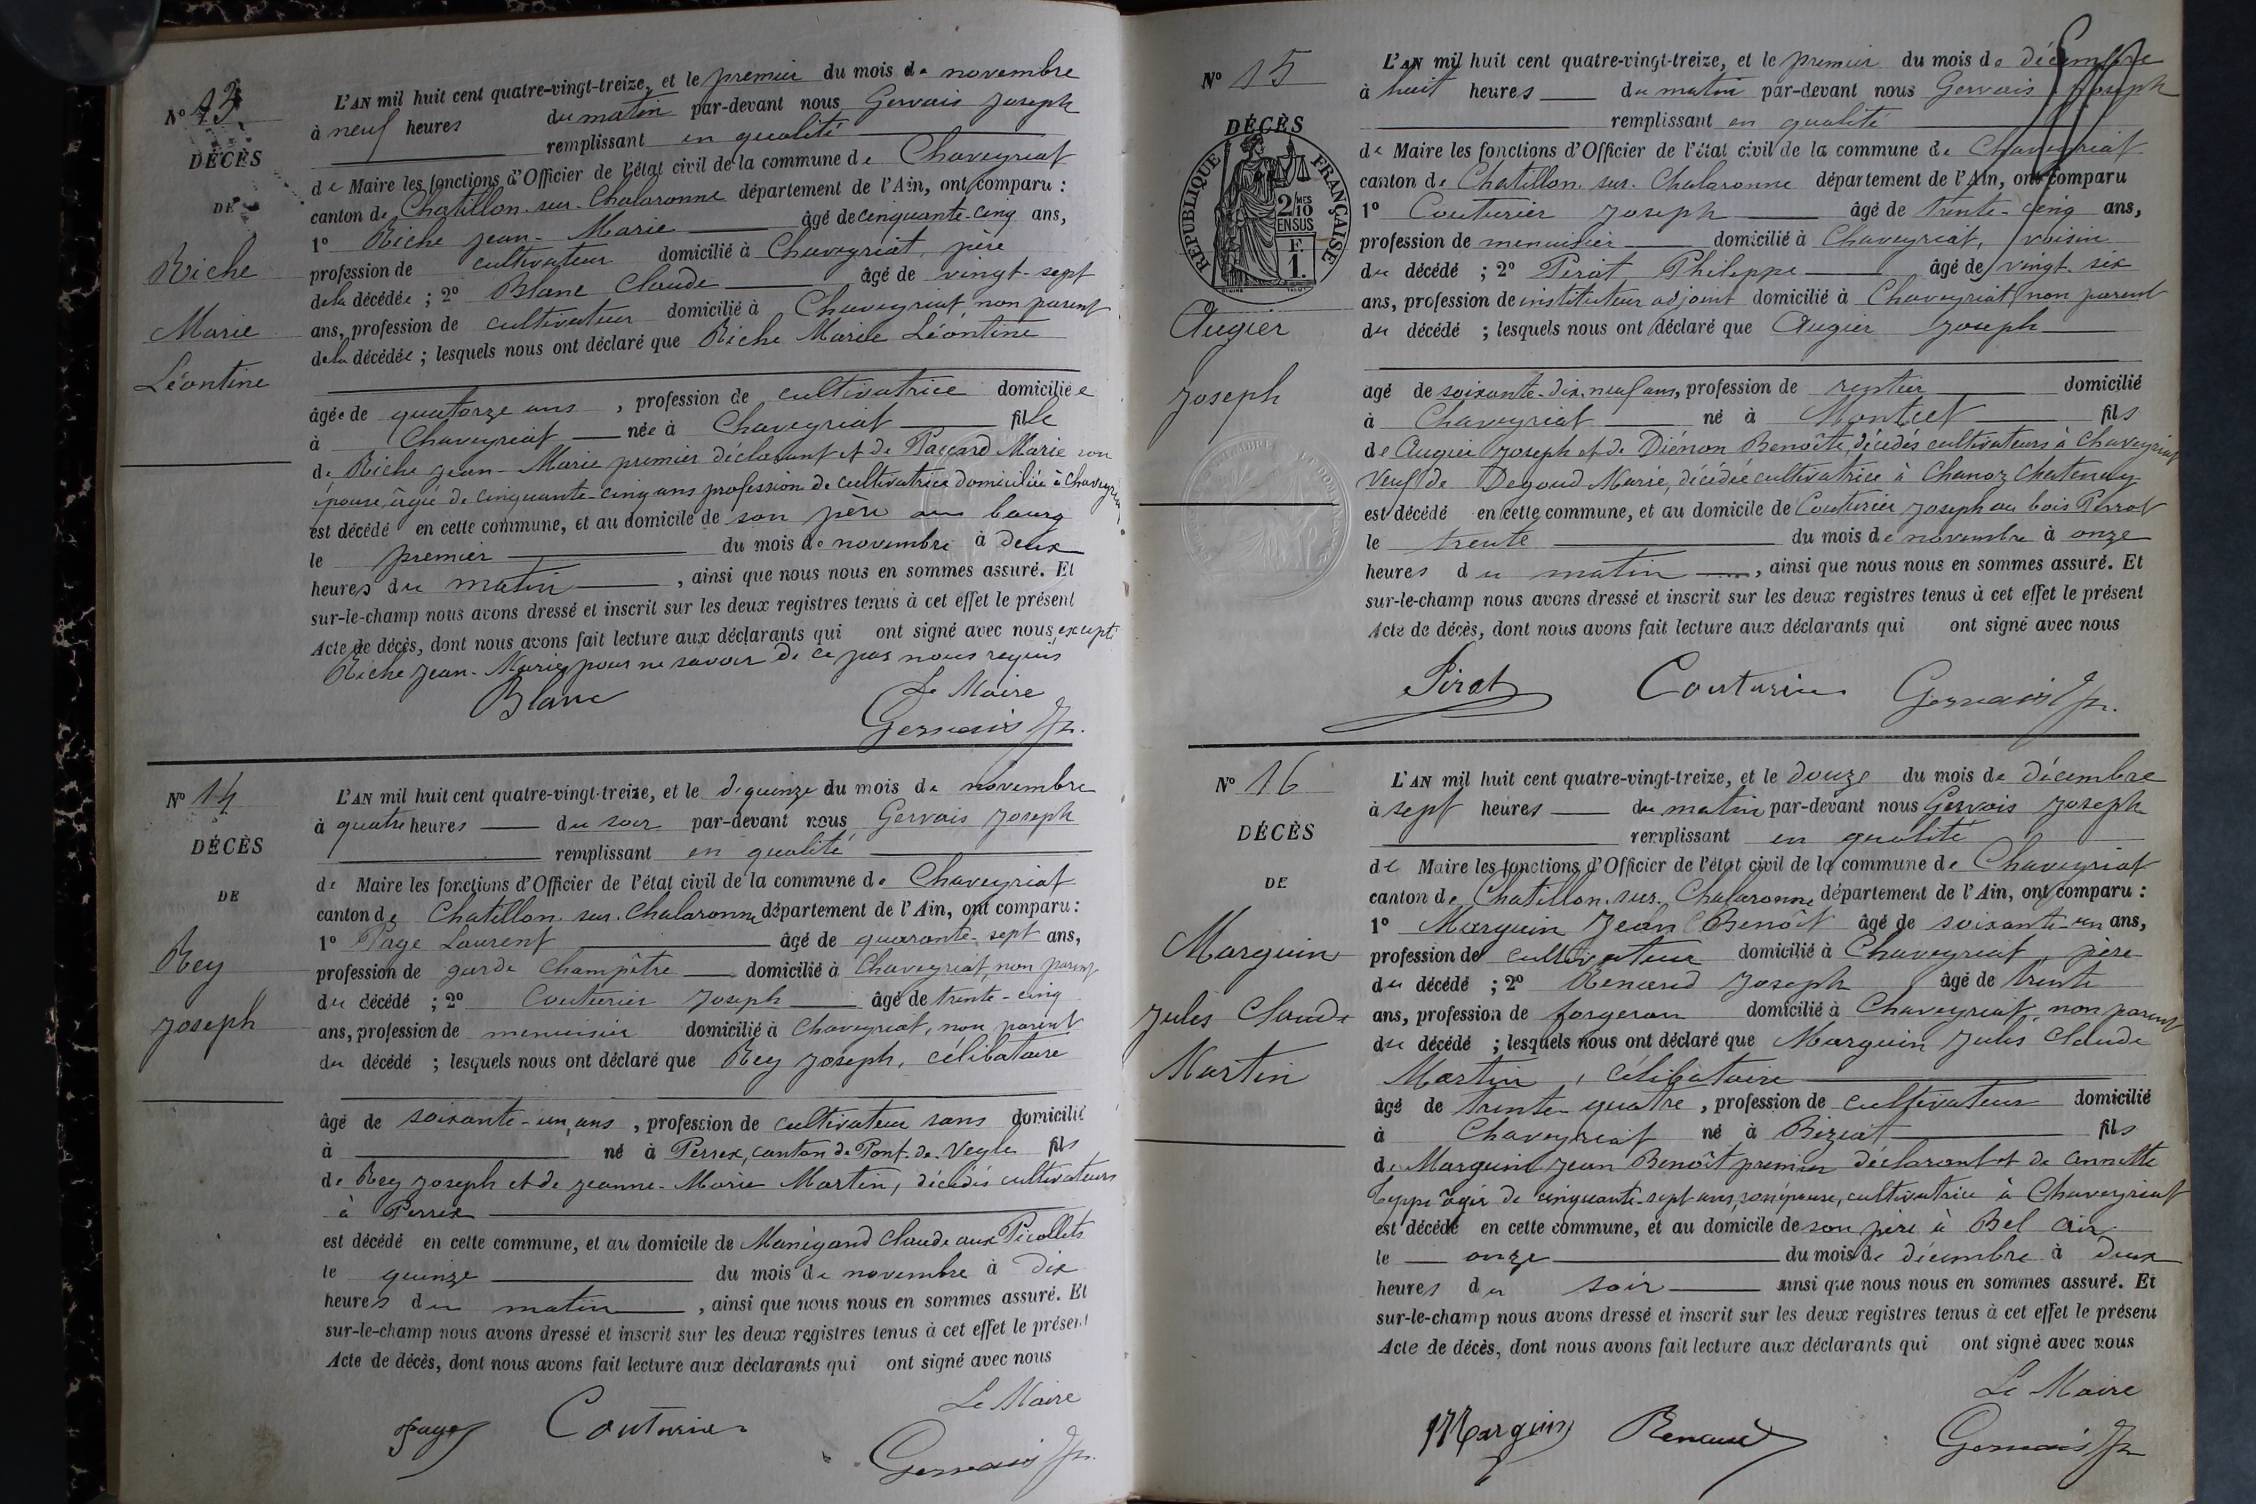 N° 13
DÉCÈS
DE
Riche
Marie
Léontine
L'AN mil huit cent quatre-vingt-treize, et le premier du mois de novembre
à neuf heures du matin par-devant nous Gervais Joseph
remplissant en qualité
de Maire les fonctions d'Officier de l'état civil de la commune de Chaveyriat
canton de Chatillon-sur-Chalaronne département de l'Ain, ont comparu :
1° Riche Jean-Marie âgé de cinquante-cinq ans,
profession de cultivateur domicilié à Chaveyriat, père
de la décédée ; 2° Blanc Claude âgé de vingt-sept
ans, profession de cultivateur domicilié à Chaveyriat, non parent
de la décédée ; lesquels nous ont déclaré que Riche Marie Léontine
âgée de quatorze ans, profession de cultivatrice domiciliée
à Chaveyriat née à Chaveyriat fille
de Riche Jean-Marie premier déclarant et de Paccard Marie son
épouse, âgée de cinquante-cinq ans profession de cultivatrice domiciliée à Chaveyriat
est décédé en cette commune, et au domicile de son père au bourg
le premier du mois de novembre à deux
heures du matin, ainsi que nous nous en sommes assuré. Et
sur-le-champ nous avons dressé et inscrit sur les deux registres tenus à cet effet le présent
Acte de décès, dont nous avons fait lecture aux déclarants qui ont signé avec nous, except
Riche Jean-Marie pour ne savoir de ce par nous requis
Le Maire
Blanc Gervais Jh.
N° 14
DÉCÈS
DE
Rey
Joseph
L'AN mil huit cent quatre-vingt-treize, et le quinze du mois de novembre
à quatre heures du soir par-devant nous Gervais Joseph
remplissant en qualité
de Maire les fonctions d'Officier de l'état civil de la commune de Chaveyriat
canton de Chatillon-sur-Chalaronne département de l'Ain, ont comparu :
1° Page Laurent âgé de quarante-sept ans,
profession de garde champêtre domicilié à Chaveyriat, non parent
du décédé ; 2° Couturier Joseph âgé de trente-cinq
ans, profession de menuisier domicilié à Chaveyriat, non parent
du décédé ; lesquels nous ont déclaré que Rey Joseph, célibataire
âgé de soixante-un ans, profession de cultivateur sans domicilié
à né à Perrex, canton de Pont-de-Veyle fils
de Rey Joseph et de Jeanne-Marie Martin, décédés cultivateurs
à Perrex
est décédé en cette commune, et au domicile de Manigand Claude aux Picollets
le quinze du mois de novembre à dix
heures du matin, ainsi que nous nous en sommes assuré. Et
sur-le-champ nous avons dressé et inscrit sur les deux registres tenus à cet effet le présent
Acte de décès, dont nous avons fait lecture aux déclarants qui ont signé avec nous
Le Maire
Page Couturier Gervais Jh.
N° 15
DÉCÈS
RÉPUBLIQUE FRANÇAISE
2 MES 10 EN SUS
F. 1.
Augier
Joseph
L'AN mil huit cent quatre-vingt-treize, et le premier du mois de décembre
à huit heures du matin par-devant nous Gervais Joseph
remplissant en qualité
de Maire les fonctions d'Officier de l'état civil de la commune de Chaveyriat
canton de Chatillon-sur-Chalaronne département de l'Ain, ont comparu
1° Couturier Joseph âgé de trente-cinq ans,
profession de menuisier domicilié à Chaveyriat, voisin
du décédé ; 2° Pirat Philippe âgé de vingt-six
ans, profession de instituteur adjoint domicilié à Chaveyriat, non parent
du décédé ; lesquels nous ont déclaré que Augier Joseph
agé de soixante-dix-neuf ans, profession de rentier domicilié
à Chaveyriat né à Montcet fils
de Augier Joseph et de Diénon Benoîte, décédés cultivateurs à Chaveyriat
veuf de Degoud Marie, décédée cultivatrice à Chanoz Chatenay
est décédé en cette commune, et au domicile de Couturier Joseph au bois Perrot
le trente du mois de novembre à onze
heures du matin, ainsi que nous nous en sommes assuré. Et
sur-le-champ nous avons dressé et inscrit sur les deux registres tenus à cet effet le présent
Acte de décès, dont nous avons fait lecture aux déclarants qui ont signé avec nous
Pirat Couturier Gervais Jh.
N° 16
DÉCÈS
DE
Marguin
Jules Claude
Martin
L'AN mil huit cent quatre-vingt-treize, et le douze du mois de décembre
à sept heures du matin par-devant nous Gervais Joseph
remplissant en qualité
de Maire les fonctions d'Officier de l'état civil de la commune de Chaveyriat
canton de Chatillon-sur-Chalaronne département de l'Ain, ont comparu :
1° Marguin Jean Benoît âgé de soixante-un ans,
profession de cultivateur domicilié à Chaveyriat, père
du décédé ; 2° Renaud Joseph âgé de trente
ans, profession de forgeron domicilié à Chaveyriat, non parent
du décédé ; lesquels nous ont déclaré que Marguin Jules Claude
Martin, célibataire
âgé de trente-quatre, profession de cultivateur domicilié
à Chaveyriat né à Béziat fils
de Marguin Jean Benoît premier déclarant et de Annette
Teppe âgée de cinquante-sept ans, son épouse, cultivatrice à Chaveyriat
est décédé en cette commune, et au domicile de son père à Bel air
le onze du mois de décembre à deux
heures du soir ainsi que nous nous en sommes assuré. Et
sur-le-champ nous avons dressé et inscrit sur les deux registres tenus à cet effet le présent
Acte de décès, dont nous avons fait lecture aux déclarants qui ont signé avec nous
Le Maire
Marguin Renaud Gervais Jh